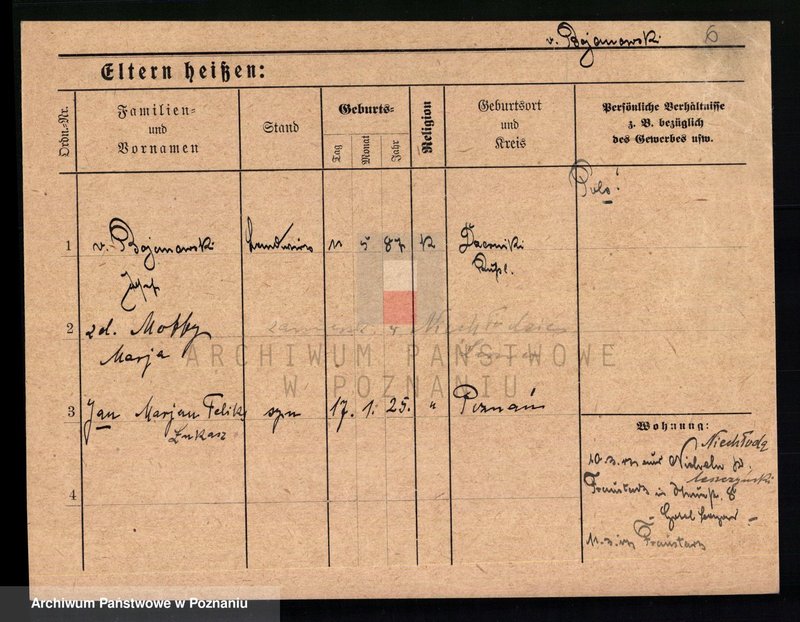 v. Bojanowski 6
Eltern heißen:
Ordn.-Nr.
Familien-
und
Vornamen
Stand
Geburts-
Tag
Monat
Jahr
Religion
Geburtsort
und
Kreis
Persönliche Verhältnisse
z. B. bezüglich
des Gewerbes usw.
1 v. Bojanowski Landwirt 11 5 87 K
2 zd. Motty zamieszk. w Niechłodzie
Marja
3 Jan Marjan Feliks syn 17. 1. 25. " Poznań
Łukasz
4
Wohnung:
Niechłoda
Leszczyński
Fraustadt in 8
Hotel
Fraustadt
ARCHIWUM PAŃSTWOWE
W POZNANIU
Archiwum Państwowe w Poznaniu